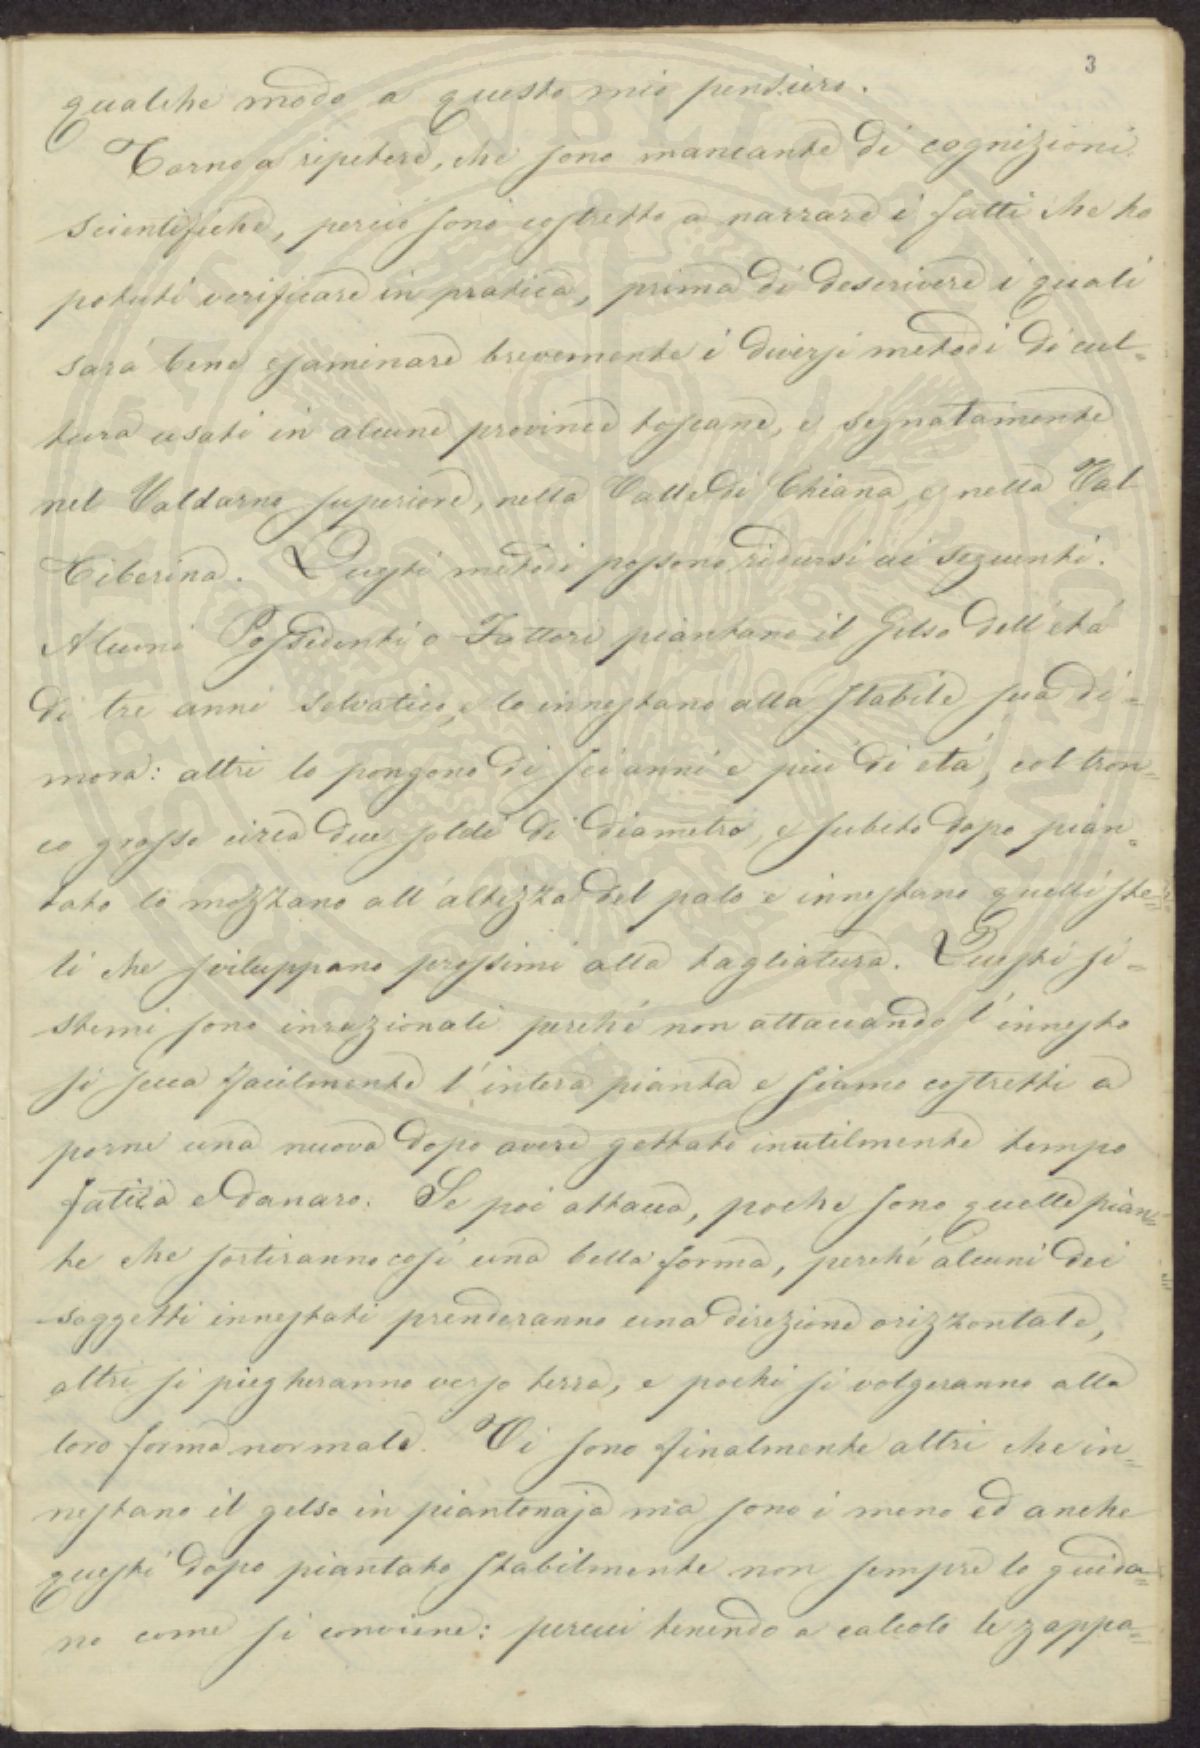 3
qualche modo a questo mio pensiero.
Torno a ripetere, che sono mancante di cognizioni
scientifiche, perciò sono costretto a narrare i fatti che ho
potuti verificare in pratica, prima di descrivere i quali
sarà bene esaminare brevemente i diversi metodi di cul=
tura usati in alcune provincie toscane, e segnatamente
nel Valdarno superiore, nella Valle di Chiana, e nella Val
Tiberina. Questi metodi possono ridursi ai seguenti.
Alcuni Possidenti o Fattori piantano il Gelso dell'età
di tre anni selvatico, e lo innestano alla stabile sua di=
mora: altri lo pongono di sei anni e più di età, col tron=
co grosso circa due soldi di diametro, e subito dopo pian=
tato lo mozzano all'altezza del palo e innestano quelli ste=
li che sviluppano prossimi alla tagliatura. Questi si=
stemi sono inrazionali perché non attaccando l'innesto
si secca facilmente l'intera pianta e siamo costretti a
porne una nuova dopo avere gettato inutilmente tempo
fatica e danaro. Se poi attacca, poche sono quelle pian=
te che sortiranno così una bella forma, perché alcuni dei
soggetti innestati prenderanno una direzione orizzontale,
altri si piegheranno verso terra, e pochi si volgeranno alla
loro forma normale. Vi sono finalmente altri che in=
nestano il gelso in piantonaja ma sono i meno ed anche
questi dopo piantato stabilmente non sempre lo guida=
no come si conviene: percui tenendo a calcolo le zappa=